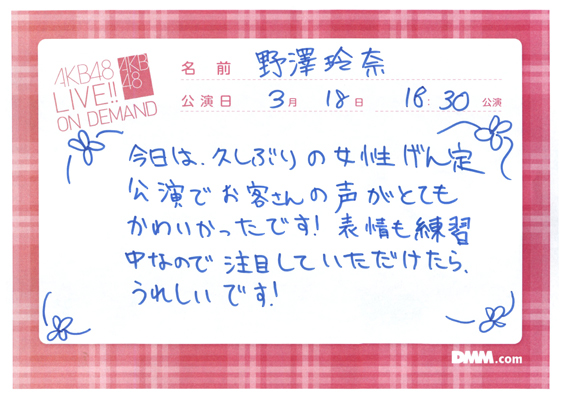 AKB48
LIVE!!
ON DEMAND
AKB
48
名前 野澤玲奈
公演日 3月 18日 18:30 公演
今日は、久しぶりの女性げん定
公演でお客さんの声がとても
かわいかったです! 表情も練習
中なので注目していただけたら、
うれしいです!
DMM.com